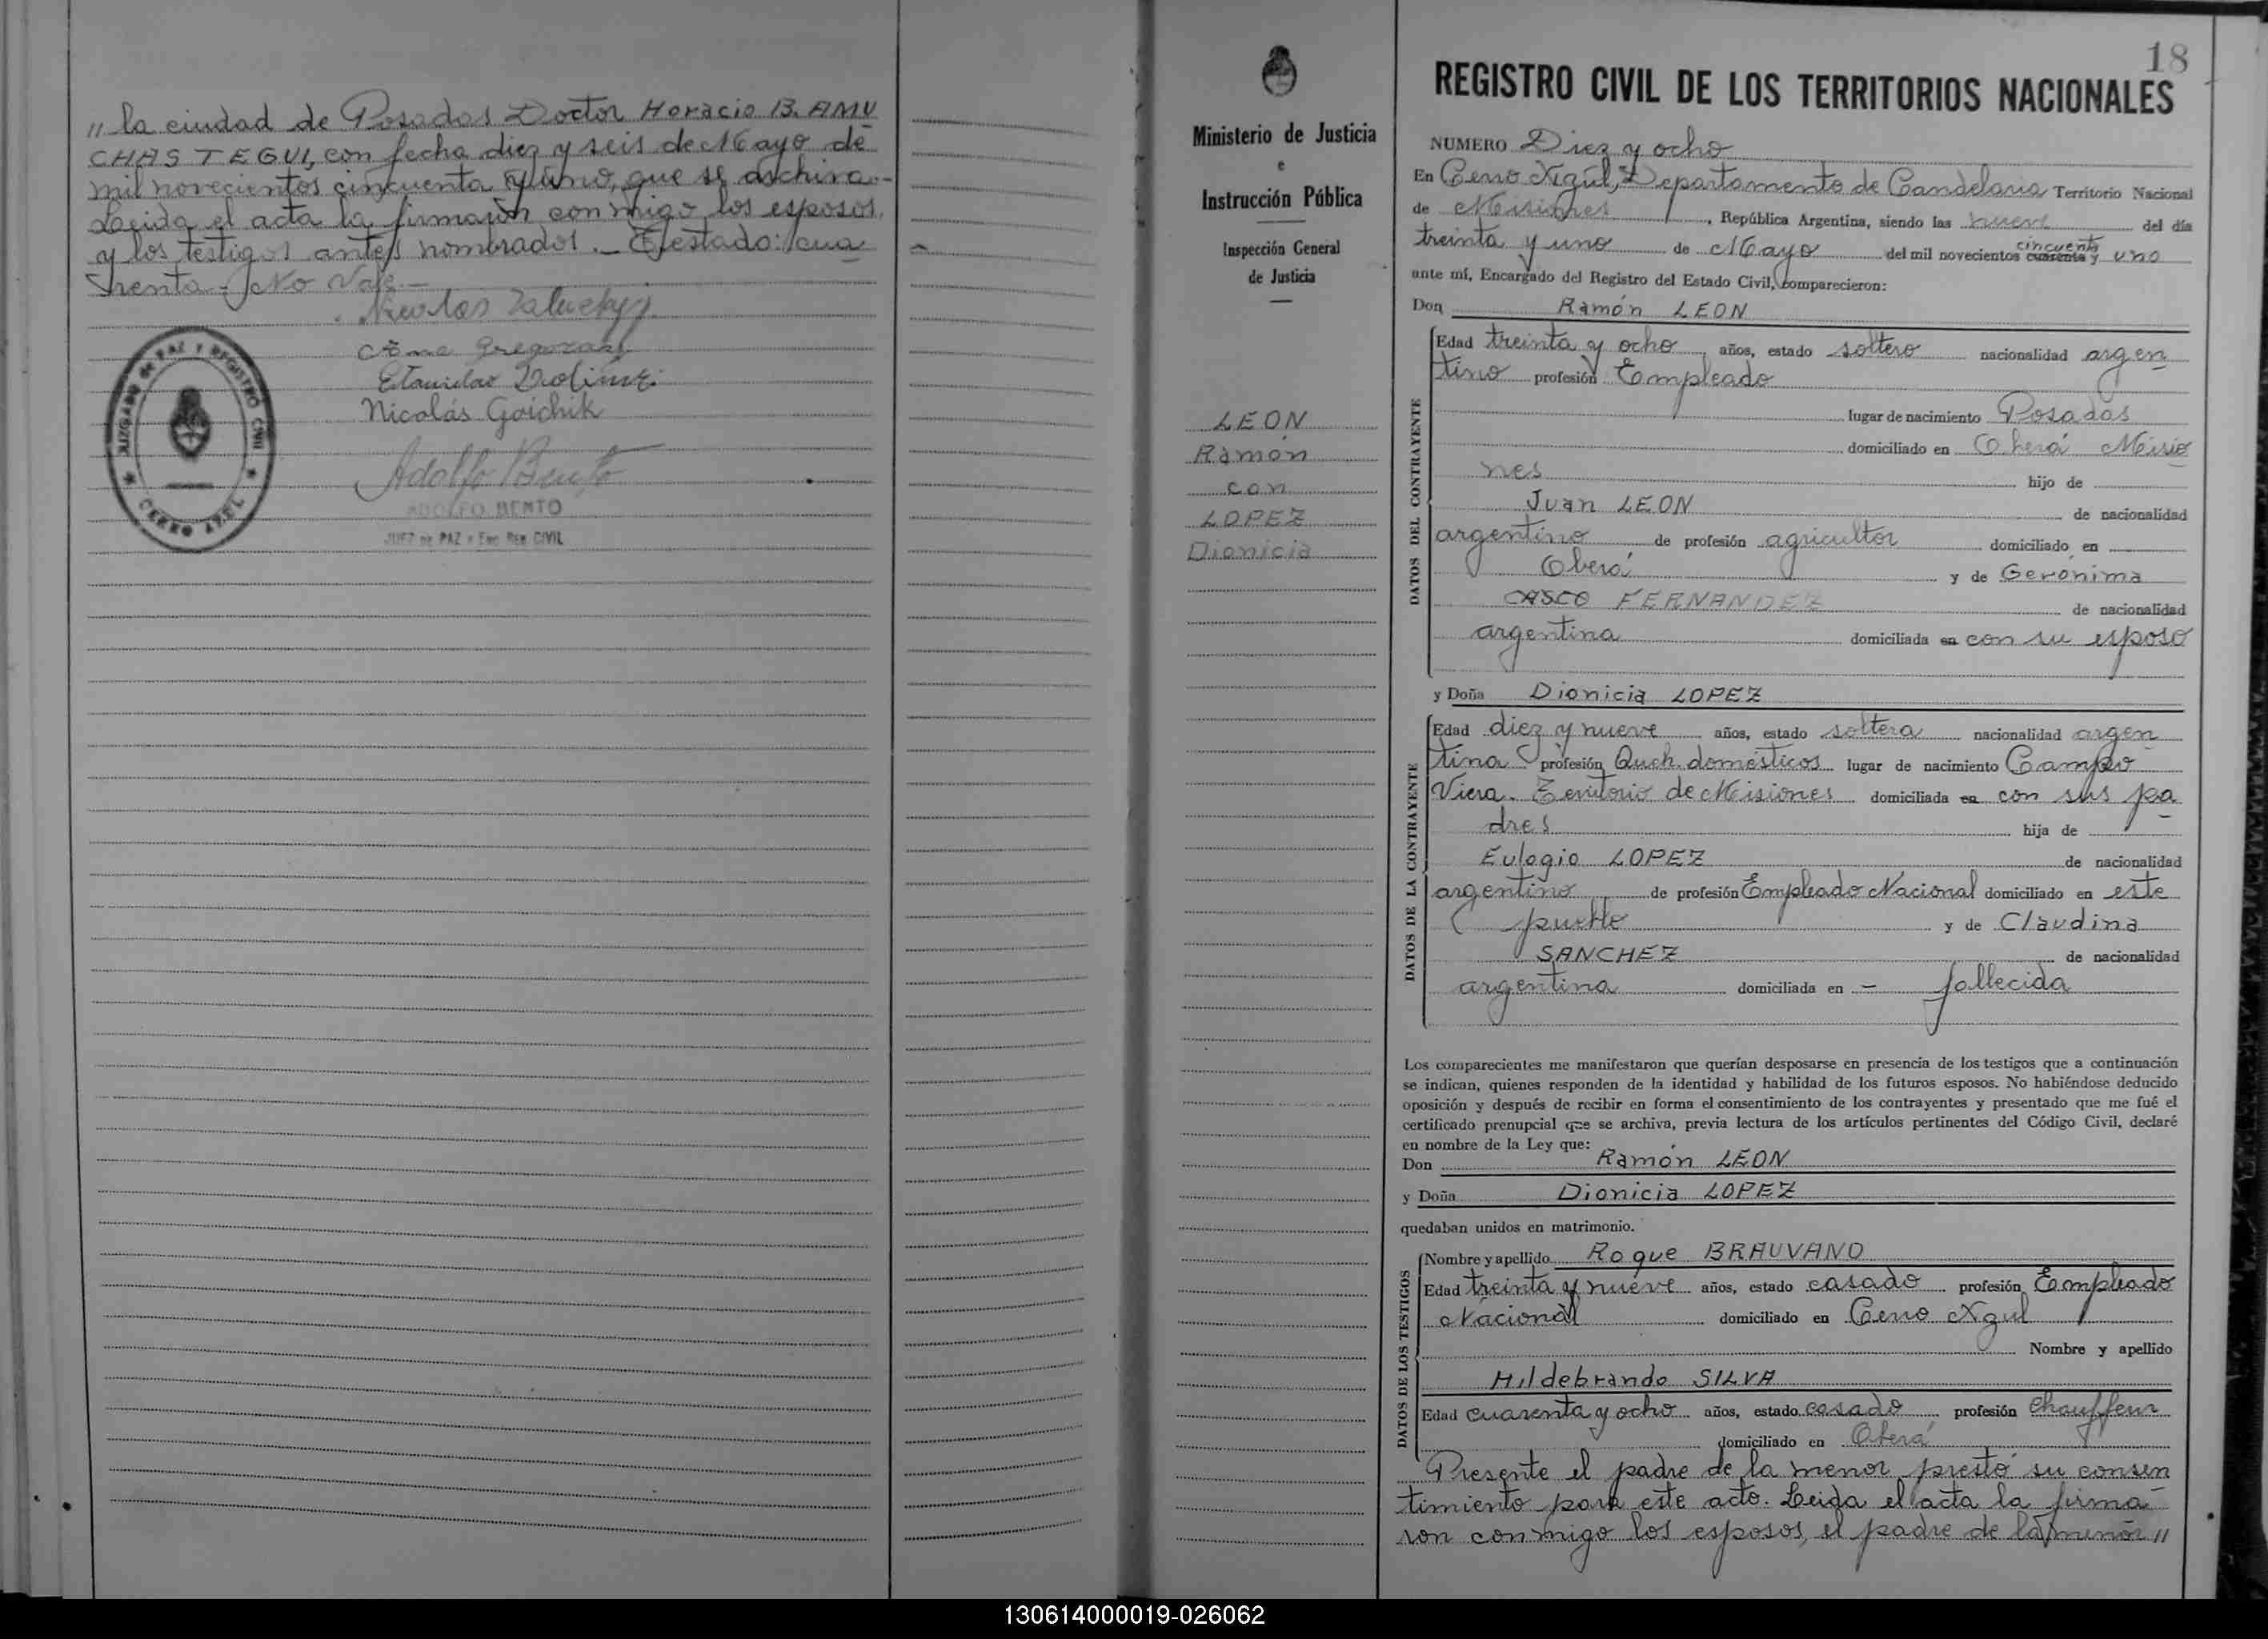 " la ciudad de Posadas Doctor Horacio B. AMU
CHASTEGUI, con fecha diez y seis de Mayo de
mil novecientos cincuenta y uno, que se archiva.-
Leida el acta la firmaron conmigo los esposos,
y los testigos antes nombrados.- Testado: cua
renta - No Vale.-
Nicolás Goichik
Adolfo Bento
ADOLFO BENTO
JUEZ DE PAZ y Enc. REG. CIVIL
JUZGADO DE PAZ Y REGISTRO CIVIL
CERRO AZUL
18
Ministerio de Justicia
e
Instrucción Pública
Inspección General
de Justicia
LEON
Ramón
con
LOPEZ
Dionicia
REGISTRO CIVIL DE LOS TERRITORIOS NACIONALES
NUMERO Diez y ocho
En Cerro Azul, Departamento de Candelaria Territorio Nacional
de Misiones, República Argentina, siendo las nueve del día
treinta y uno de Mayo del mil novecientos cuarenta cincuenta y uno
ante mí, Encargado del Registro del Estado Civil, comparecieron:
Don Ramón LEON
DATOS DEL CONTRAYENTE
Edad treinta y ocho años, estado soltero nacionalidad argen
tino profesión Empleado
lugar de nacimiento Posadas
domiciliado en Oberá Misio
nes hijo de
Juan LEON de nacionalidad
argentino de profesión agricultor domiciliado en
Oberá y de Gerónima
CASCO FERNANDEZ de nacionalidad
argentina domiciliada en con su esposo
y Doña Dionicia LOPEZ
DATOS DE LA CONTRAYENTE
Edad diez y nueve años, estado soltera nacionalidad argen
tina profesión Queh. domésticos lugar de nacimiento Campo
Viera. Territorio de Misiones domiciliada en con sus pa
dres hija de
Eulogio LOPEZ de nacionalidad
argentino de profesión Empleado Nacional domiciliado en este
pueblo y de Claudina
SANCHEZ de nacionalidad
argentina domiciliada en - fallecida
Los comparecientes me manifestaron que querían desposarse en presencia de los testigos que a continuación
se indican, quienes responden de la identidad y habilidad de los futuros esposos. No habiéndose deducido
oposición y después de recibir en forma el consentimiento de los contrayentes y presentado que me fué el
certificado prenupcial que se archiva, previa lectura de los artículos pertinentes del Código Civil, declaré
en nombre de la Ley que:
Don Ramón LEON
y Doña Dionicia LOPEZ
quedaban unidos en matrimonio.
DATOS DE LOS TESTIGOS
Nombre y apellido Roque BRAUVANO
Edad treinta y nueve años, estado casado profesión Empleado
Nacional domiciliado en Cerro Azul
Nombre y apellido
Hildebrando SILVA
Edad cuarenta y ocho años, estado casado profesión Chauffeur
domiciliado en Oberá
Presente el padre de la menor prestó su consen
timiento para este acto. Leida el acta la firma
ron conmigo los esposos, el padre de la menor "
130614000019-026062